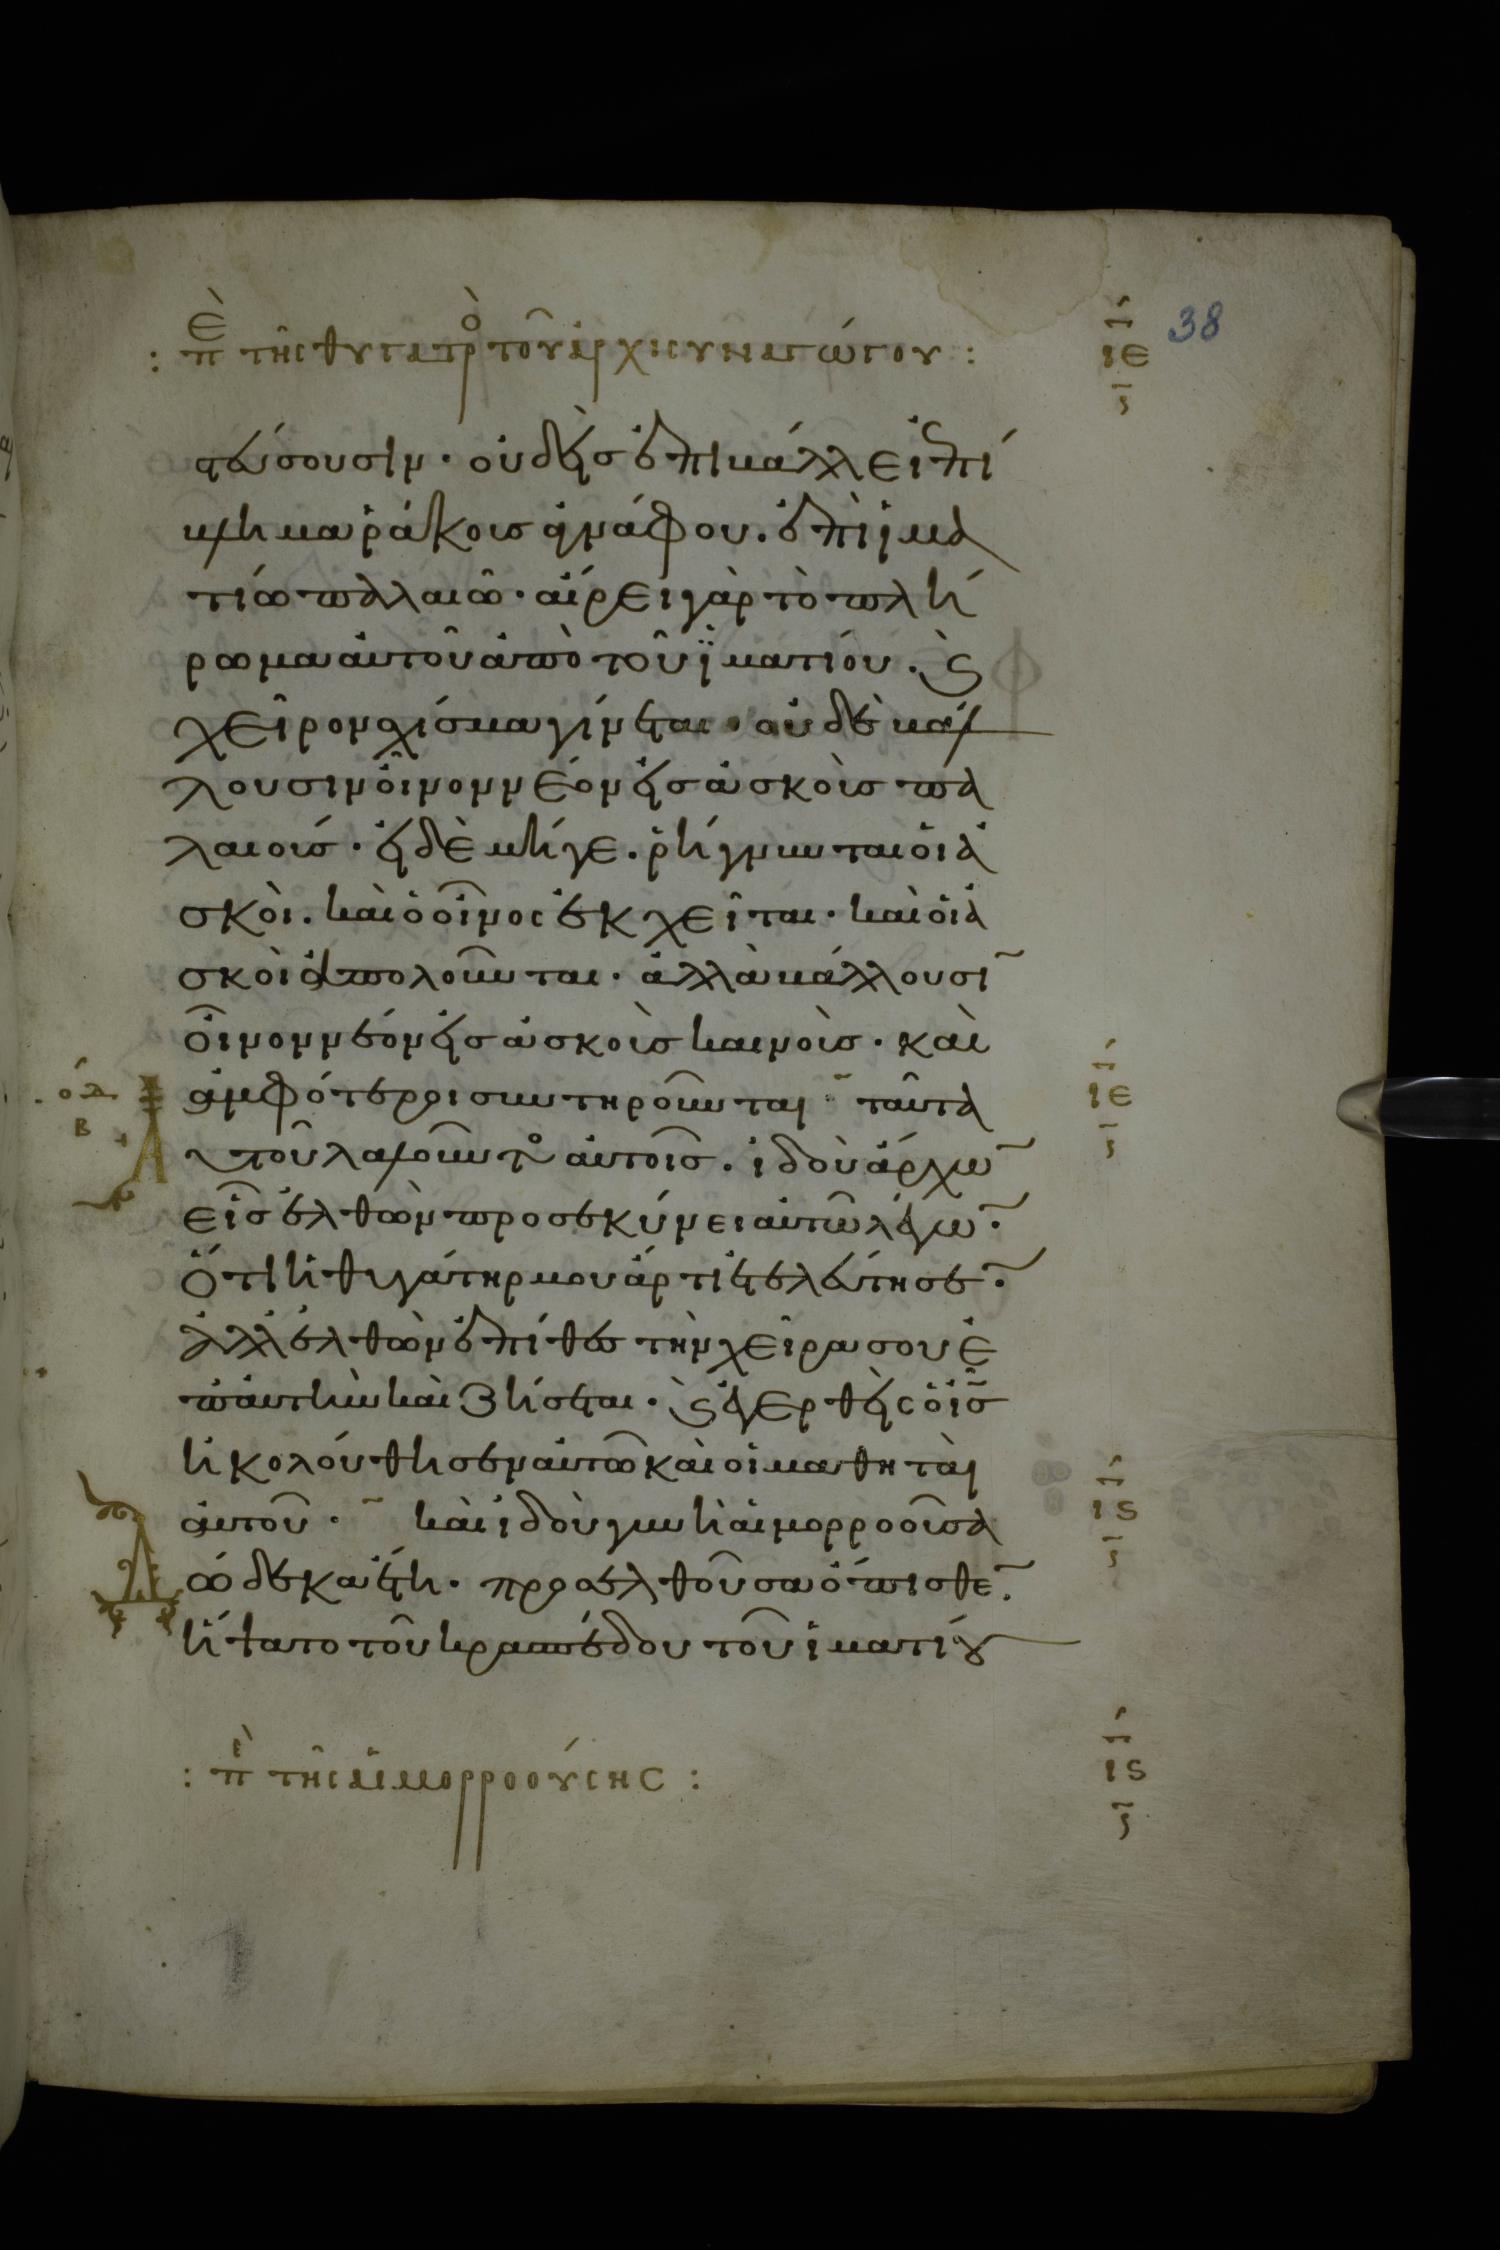 : Ἐπὶ τῆς θυγατρὸ τοῦ ἀρχισυναγώγου :
38
ιε
στεύσουσιν · οὐδεὶς ἐπιβάλλει ἐπί
βλημα ῥάκους ἀγνάφου . ἐπὶ ἱμα
τίω παλαιῶ · αἴρει γὰρ τὸ πλή
ρωμα αὐτοῦ ἀπὸ τοῦ ϊματίου . ϗ
χεῖρον σχίσμα γίνεται · οὐδὲ βάλ
λουσιν οἶνον νέον εἰς ἀσκοὺς πα
λαιούς · εἰ δὲ μήγε . ῥήγνυνται οἱ ἀ
σκοὶ . καὶ ὁ οἶνος ἐκχεῖται · καὶ οἱ ἀ
σκοὶ ἀπολοῦνται · ἀλλὰ βάλλουσι
οἶνον νέον εἰς ἀσκοὺς καινοὺς · καὶ
ἀμφότεροι συντηροῦνται ταῦτα
ιε
Β
αὐτοῦ λαλοῦντο αὐτοῖς . ἰδοὺ ἄρχων
εἷς ἐλθὼν προσεκύνει αὐτῶ λέγων ·
ὅτι ἡ θυγάτηρ μου ἄρτι ἐτελεύτησεν ·
ἀλλ' ἐλθὼν ἐπίθες τὴν χεῖρα σου ἐ
π' αὐτὴν καὶ ζήσεται · ϗ ἐγερθεὶς ὁ ις
ἠκολούθησεν αὐτῶ καὶ οἱ μαθηταὶ
αὐτοῦ · καὶ ἰδοὺ γυνὴ αἱμορροοῦσα
ις
δώδεκα ἔτη · προσελθοῦσα ὄπισθεν ·
ἥψατο τοῦ κρασπέδου τοῦ ἱματίου
: Ἐπὶ τῆς αἱμορροούσης :
ις